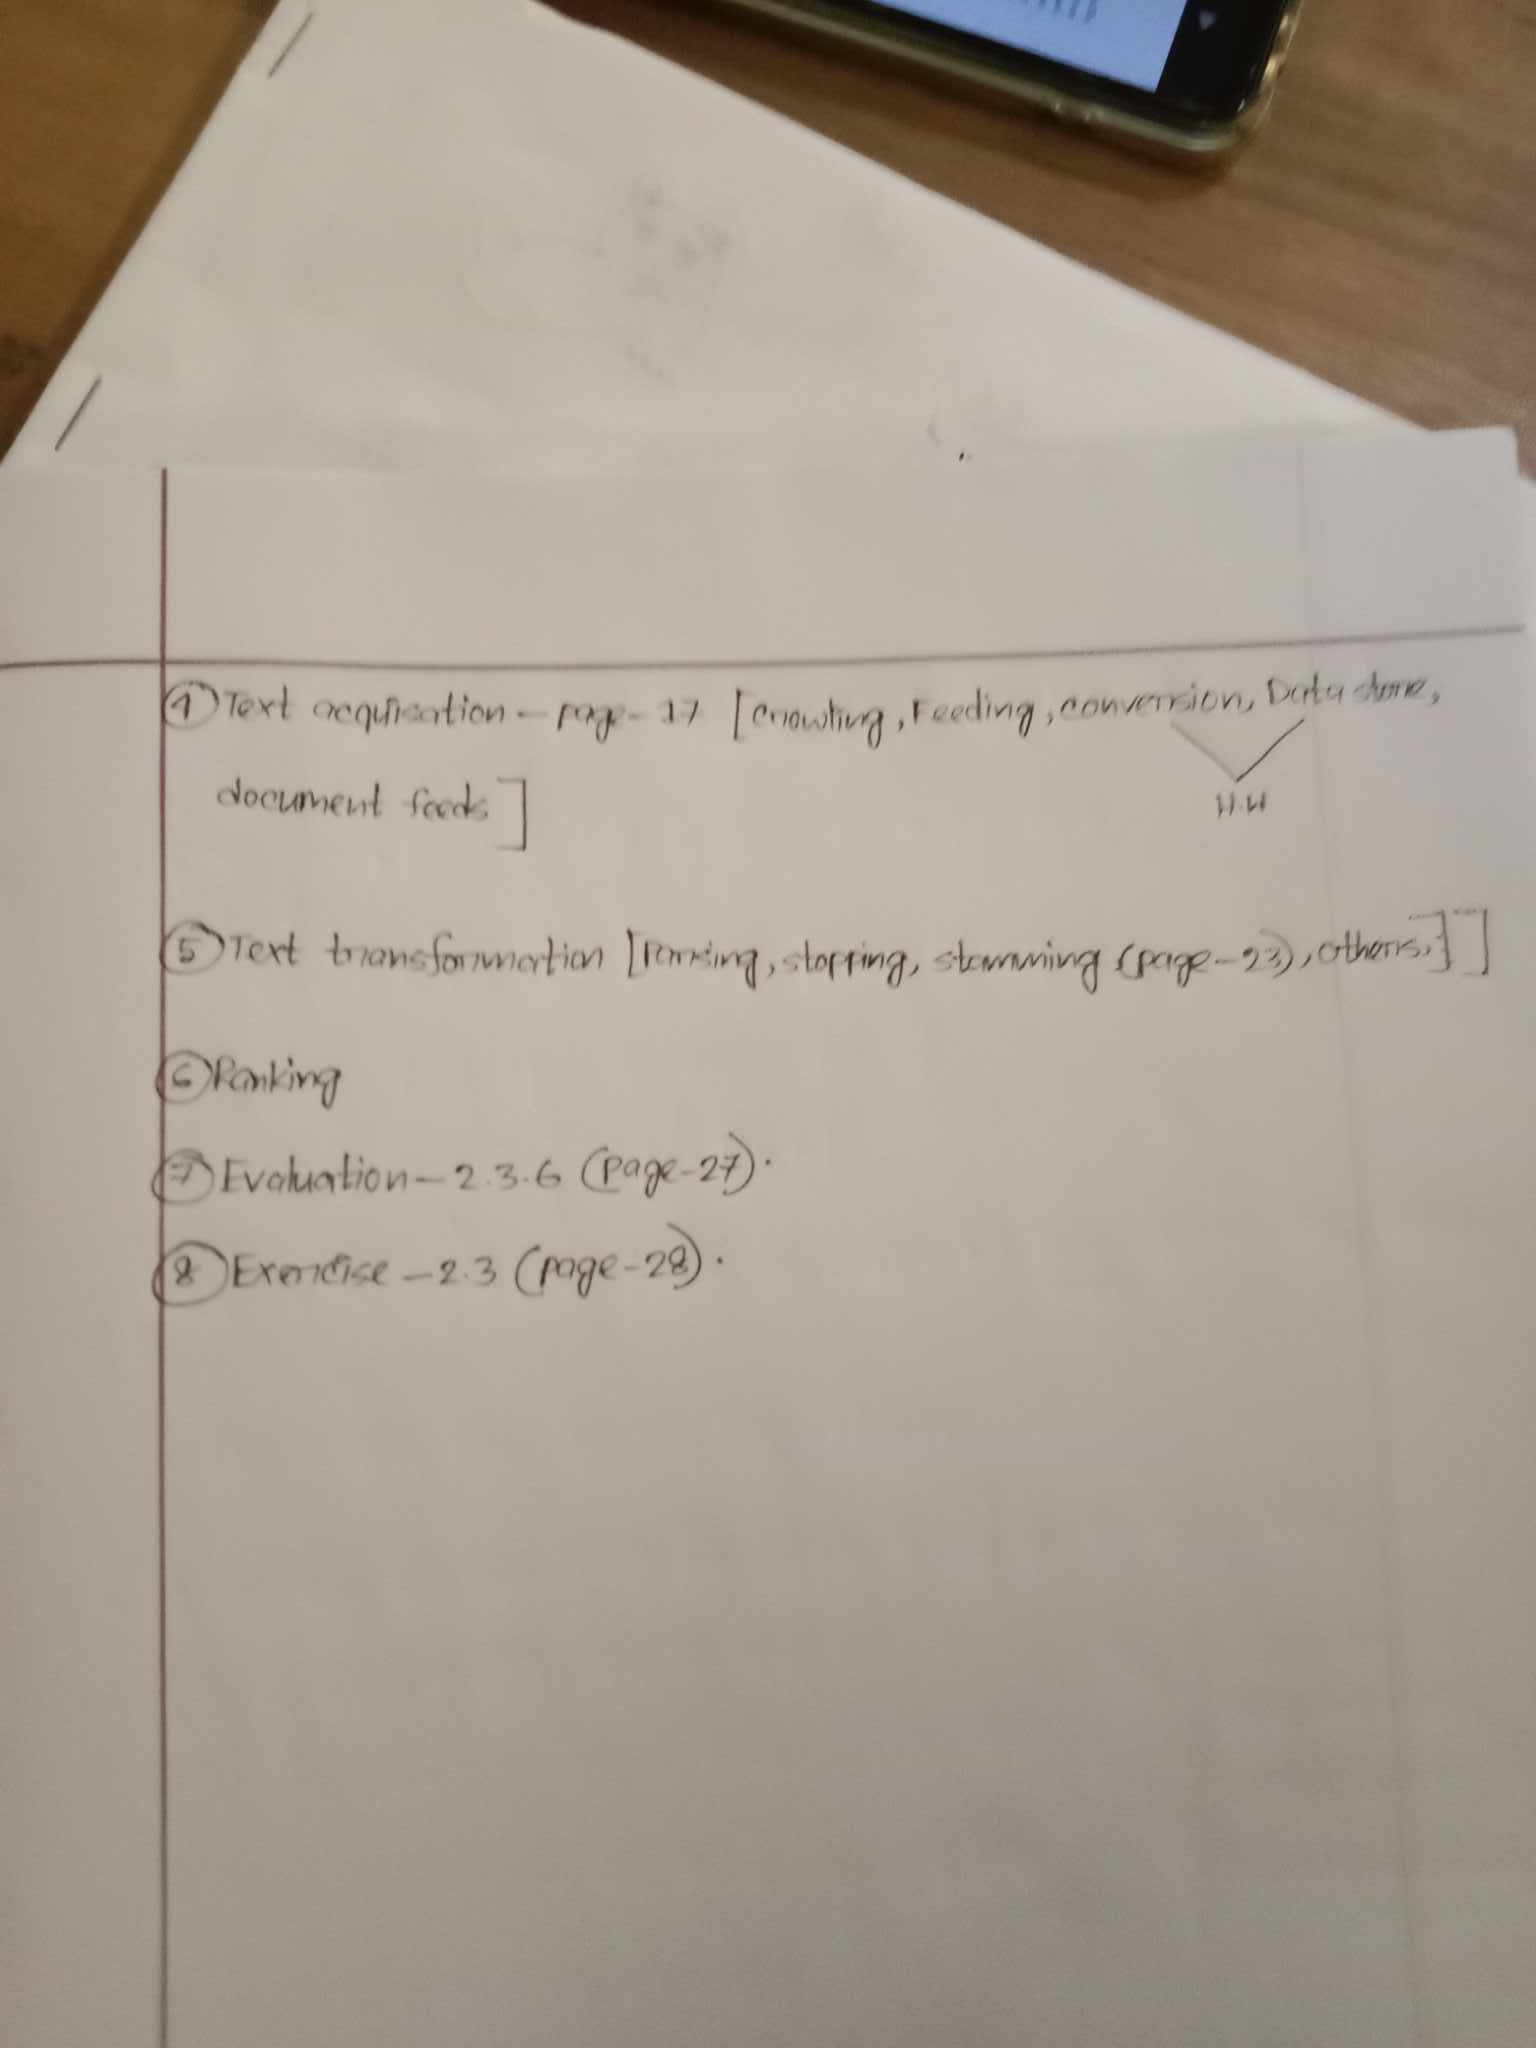 ④ Text acquisation - page - 17 [Crowling, Feeding, conversion, Data store,
H.W
document feeds]
⑤ Text transformation [Parsing, stopping, stamming (page-23), others.]]
⑥ Ranking
⑦ Evaluation - 2.3.6 (page-27).
⑧ Exercise - 2.3 (page-28).